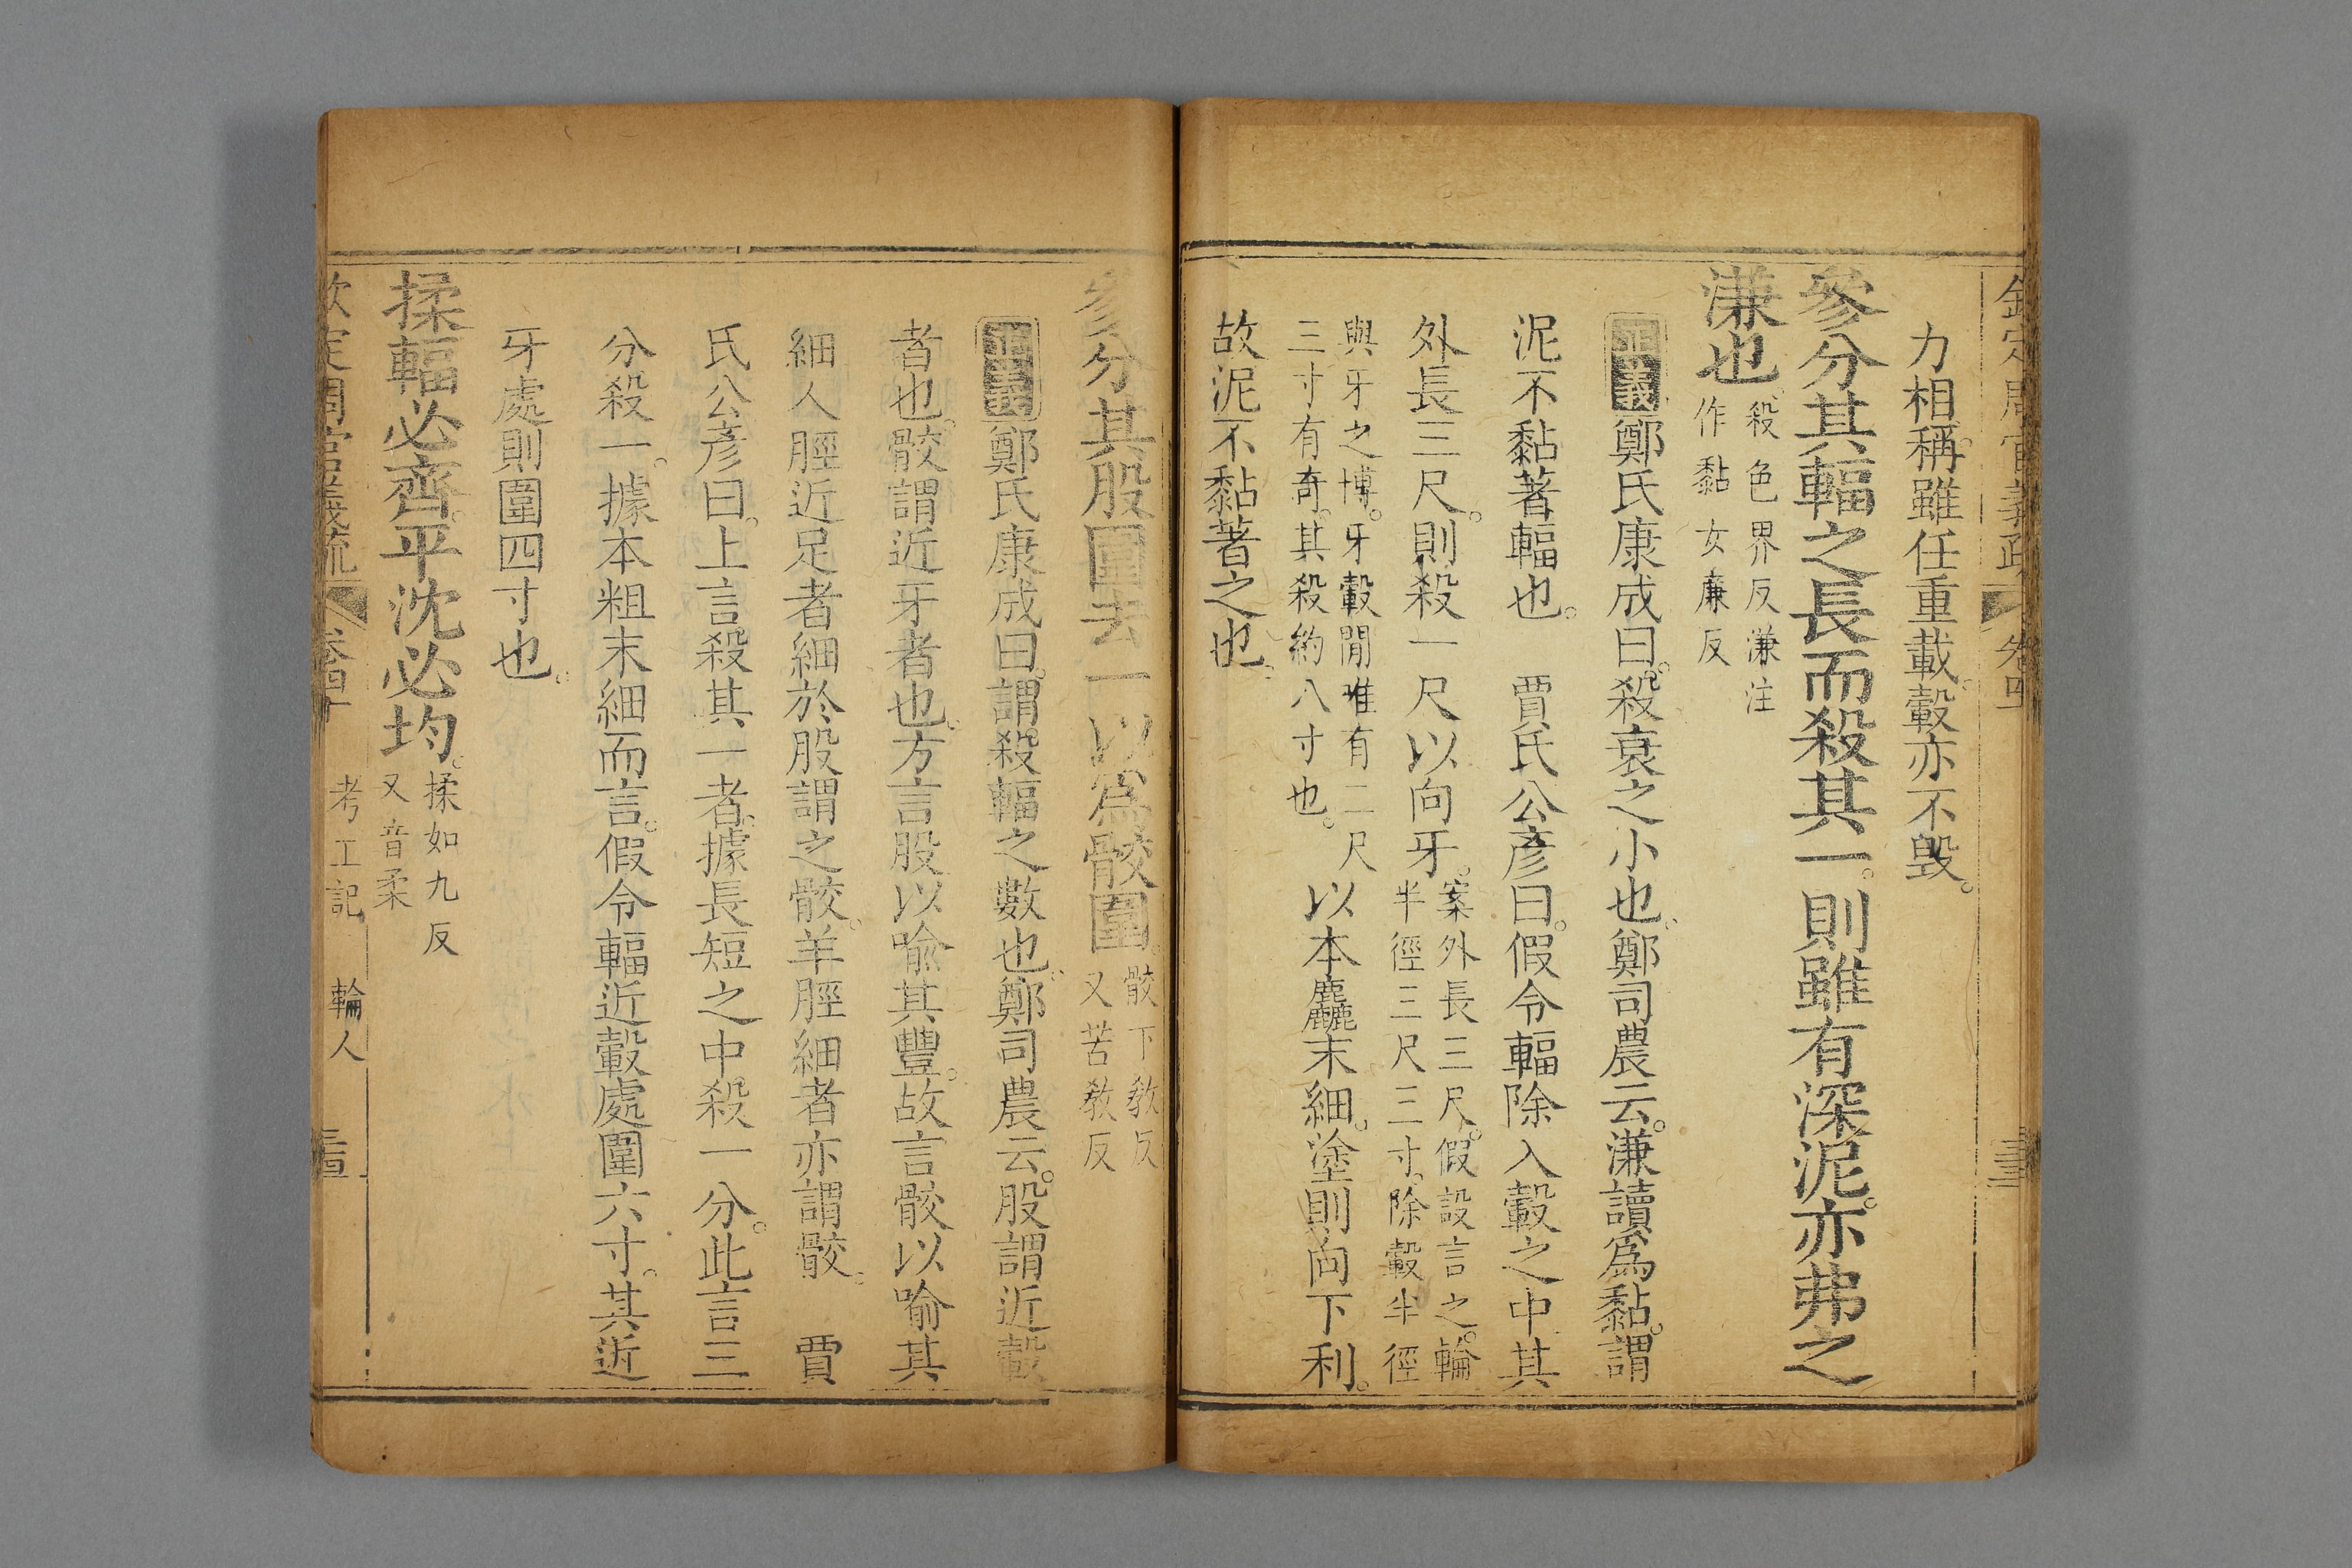 力相稱。雖任重載。轂亦不毀。
參分其輻之長而殺其一。則雖有深泥。亦弗之
溓也。殺色界反溓注
作黏女廉反
正義鄭氏康成曰。殺衰之小也。鄭司農云。溓讀爲黏。謂
泥不黏著輻也。 賈氏公彥曰。假令輻除入轂之中其
外長三尺。則殺一尺以向牙。案外長三尺。假設言之。輪
半徑三尺三寸。除轂半徑
與牙之博。牙轂閒唯有二尺
三寸有奇。其殺約八寸也。以本麤末細。塗則向下利。
故泥不黏著之也。
參分其股圍去一以爲骹圍。骹下教反
又苦教反
正義鄭氏康成曰。謂殺輻之數也。鄭司農云。股謂近轂
者也。骹謂近牙者也。方言股以喻其豐。故言骹以喻其
細。人脛近足者細於股謂之骹。羊脛細者亦謂骹。 賈
氏公彥曰。上言殺其一者。據長短之中殺一分。此言三
分殺一。據本粗末細而言。假令輻近轂處圍六寸。其近
牙處則圍四寸也。
揉輻必齊。平沈必均。揉如九反
又音柔
考工記 輪人